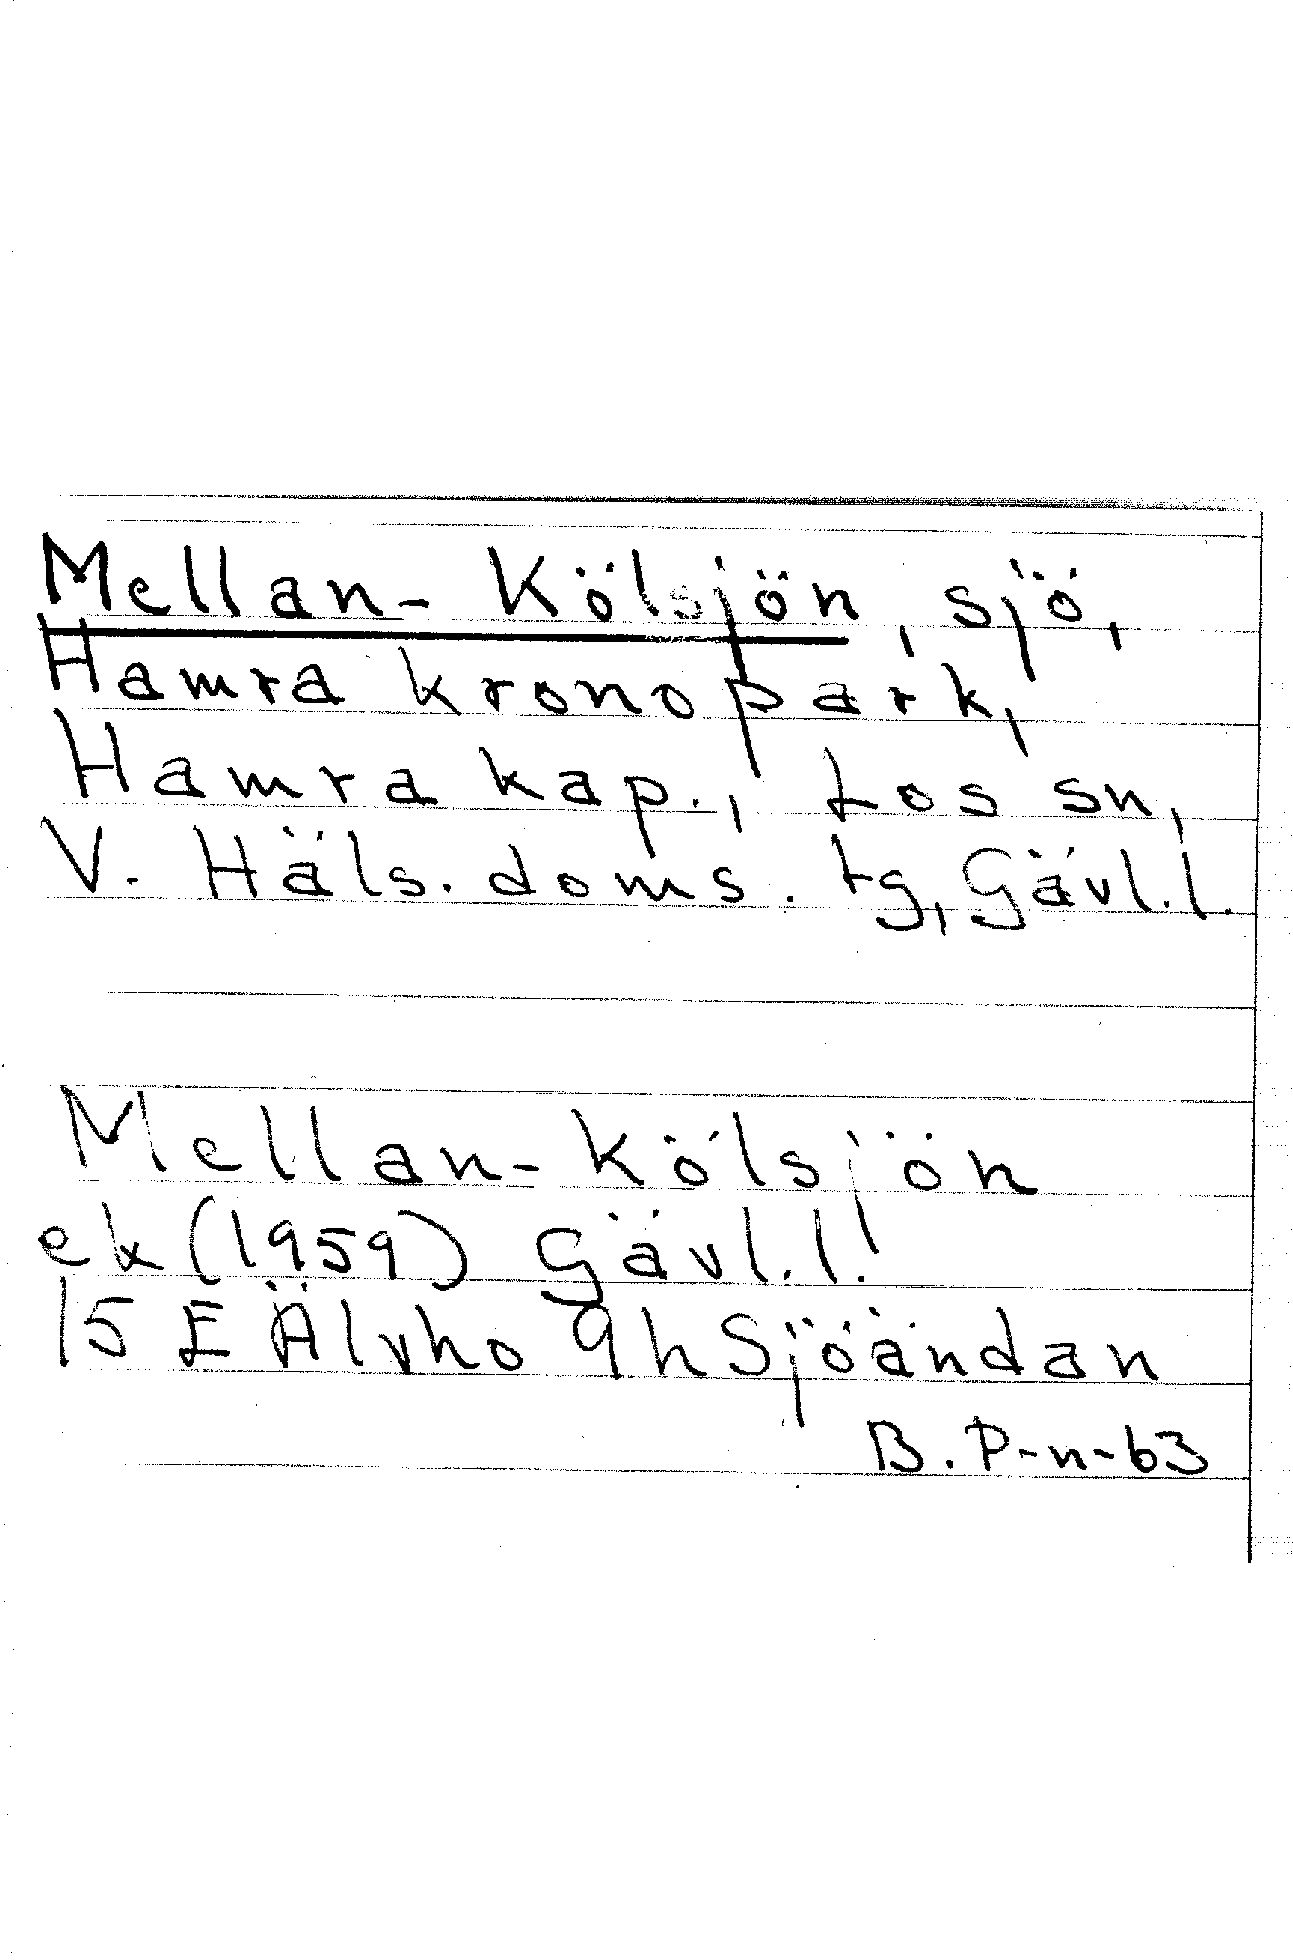 Mellan-Kölsjön, sjö,
Hamra kronopark,
Hamra kap., Los sn,
V. Häls. doms. tg, Gävl.l.
Mellan-Kölsjön
ek (1959) Gävl.l.!
15 E Älvho 9h Sjöändan
B. P-n-63